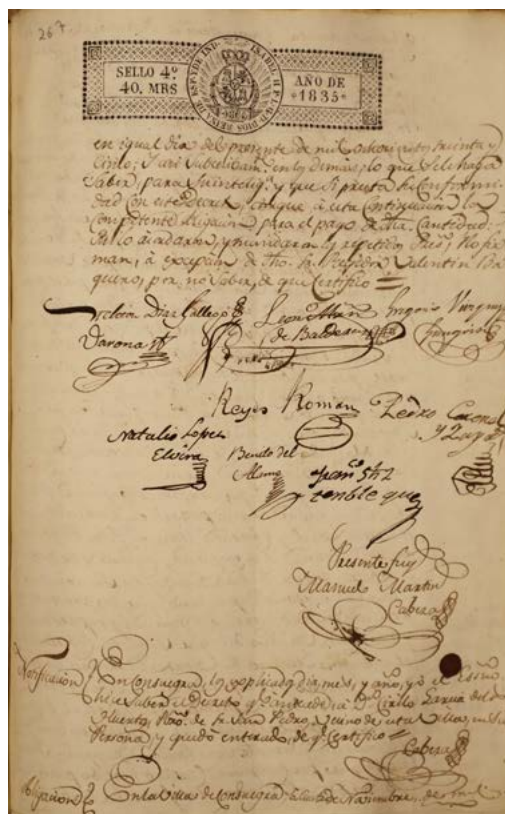 267
SELLO 4º
40. MRS
ISABEL II P.L.G.D. DIOS REINA DE ESP. Y DE IND.
AÑO DE
1835
en igual dia del presente de mil ochocientos treinta y
Cinco; y asi subcesibam.te en los demas; lo que se le haga
Saber, para su intelig.a y que si presta su conformi-
dad con este Decreto, otorgue à esta Continuacion la
Competente obligacion para el pago de dha. Cantidad:
Asi lo acordaron, y mandaron los repetidos Sres. y lo fir
man, à excepcion de dho. Sr. Rexidor Valentin Ba
quero, por no Saber, de que Certifico =
Diaz Gallego
Leon
Gregorio
Varona
de
Reyes Roman
Pedro
Natalio Lopez
Elvira
Benito del
Alamo
Fran.co
tenbleque
Presente fuy
Manuel Martin
Cabeza
Notificacion
En Consuegra, los explicados dia, mes, y año, yo el Essno
hice saber el Decreto q.e antecede, à D.n Cirilo Garcia del
Huerto, de Sn. Juan Pedro, vecino de esta Villa, en su
Persona y quedó enterado, de q.e Certifico =
Cabeza
Obligacion
En la Villa de Consuegra de Noviembre, de mil